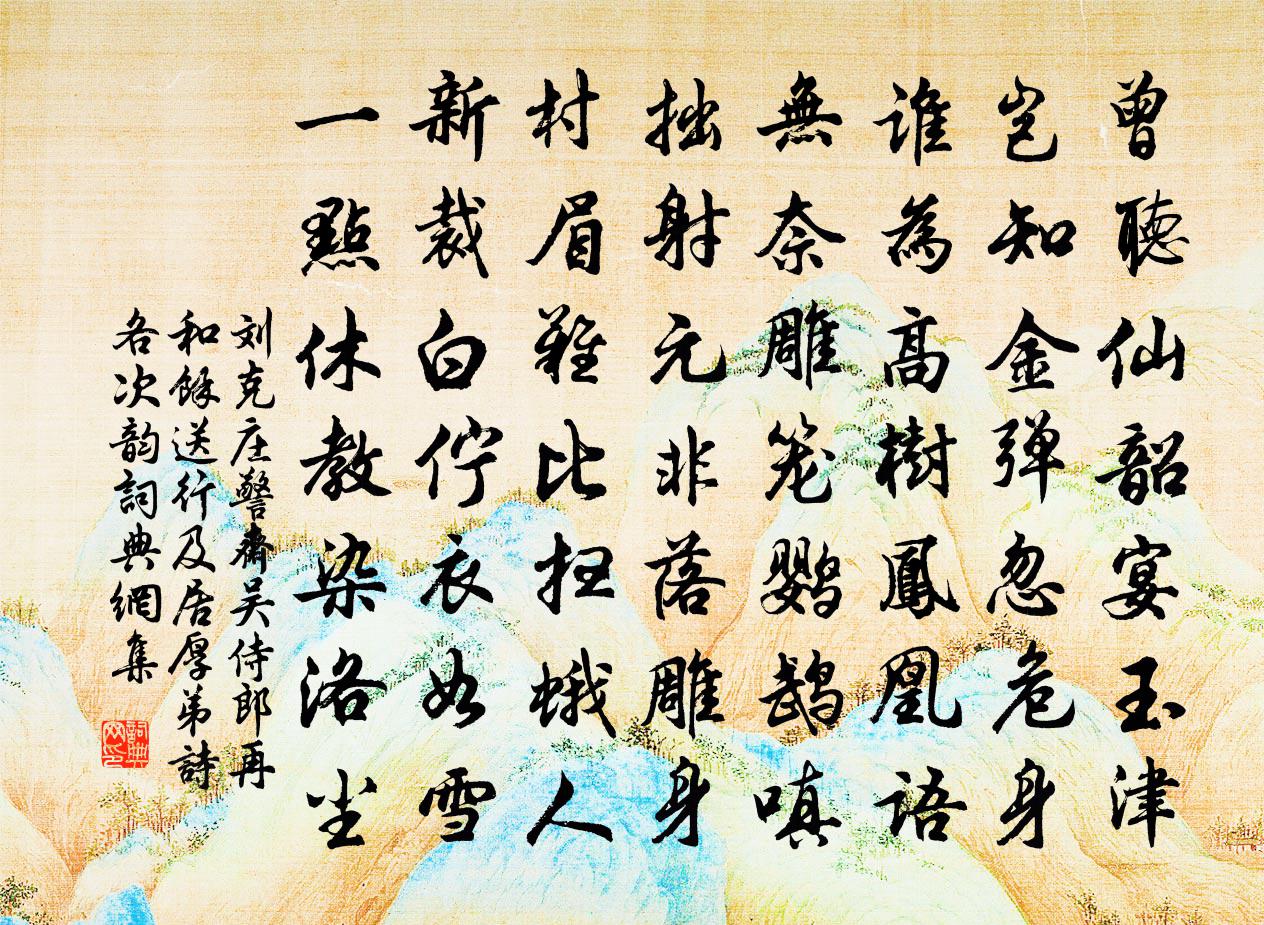 曾聽仙韶宴玉津
岂知金弹忽危身
谁為高樹鳳凰語
無奈雕笼鹦鹉嗔
拙射元非落雕身
村眉難比扫蛾人
新裁白佇衣如雪
一點休教染洛尘
刘克庄警齋吴侍郎再
和餘送行及居厚弟詩
各次韵詞典網集
詞典网印